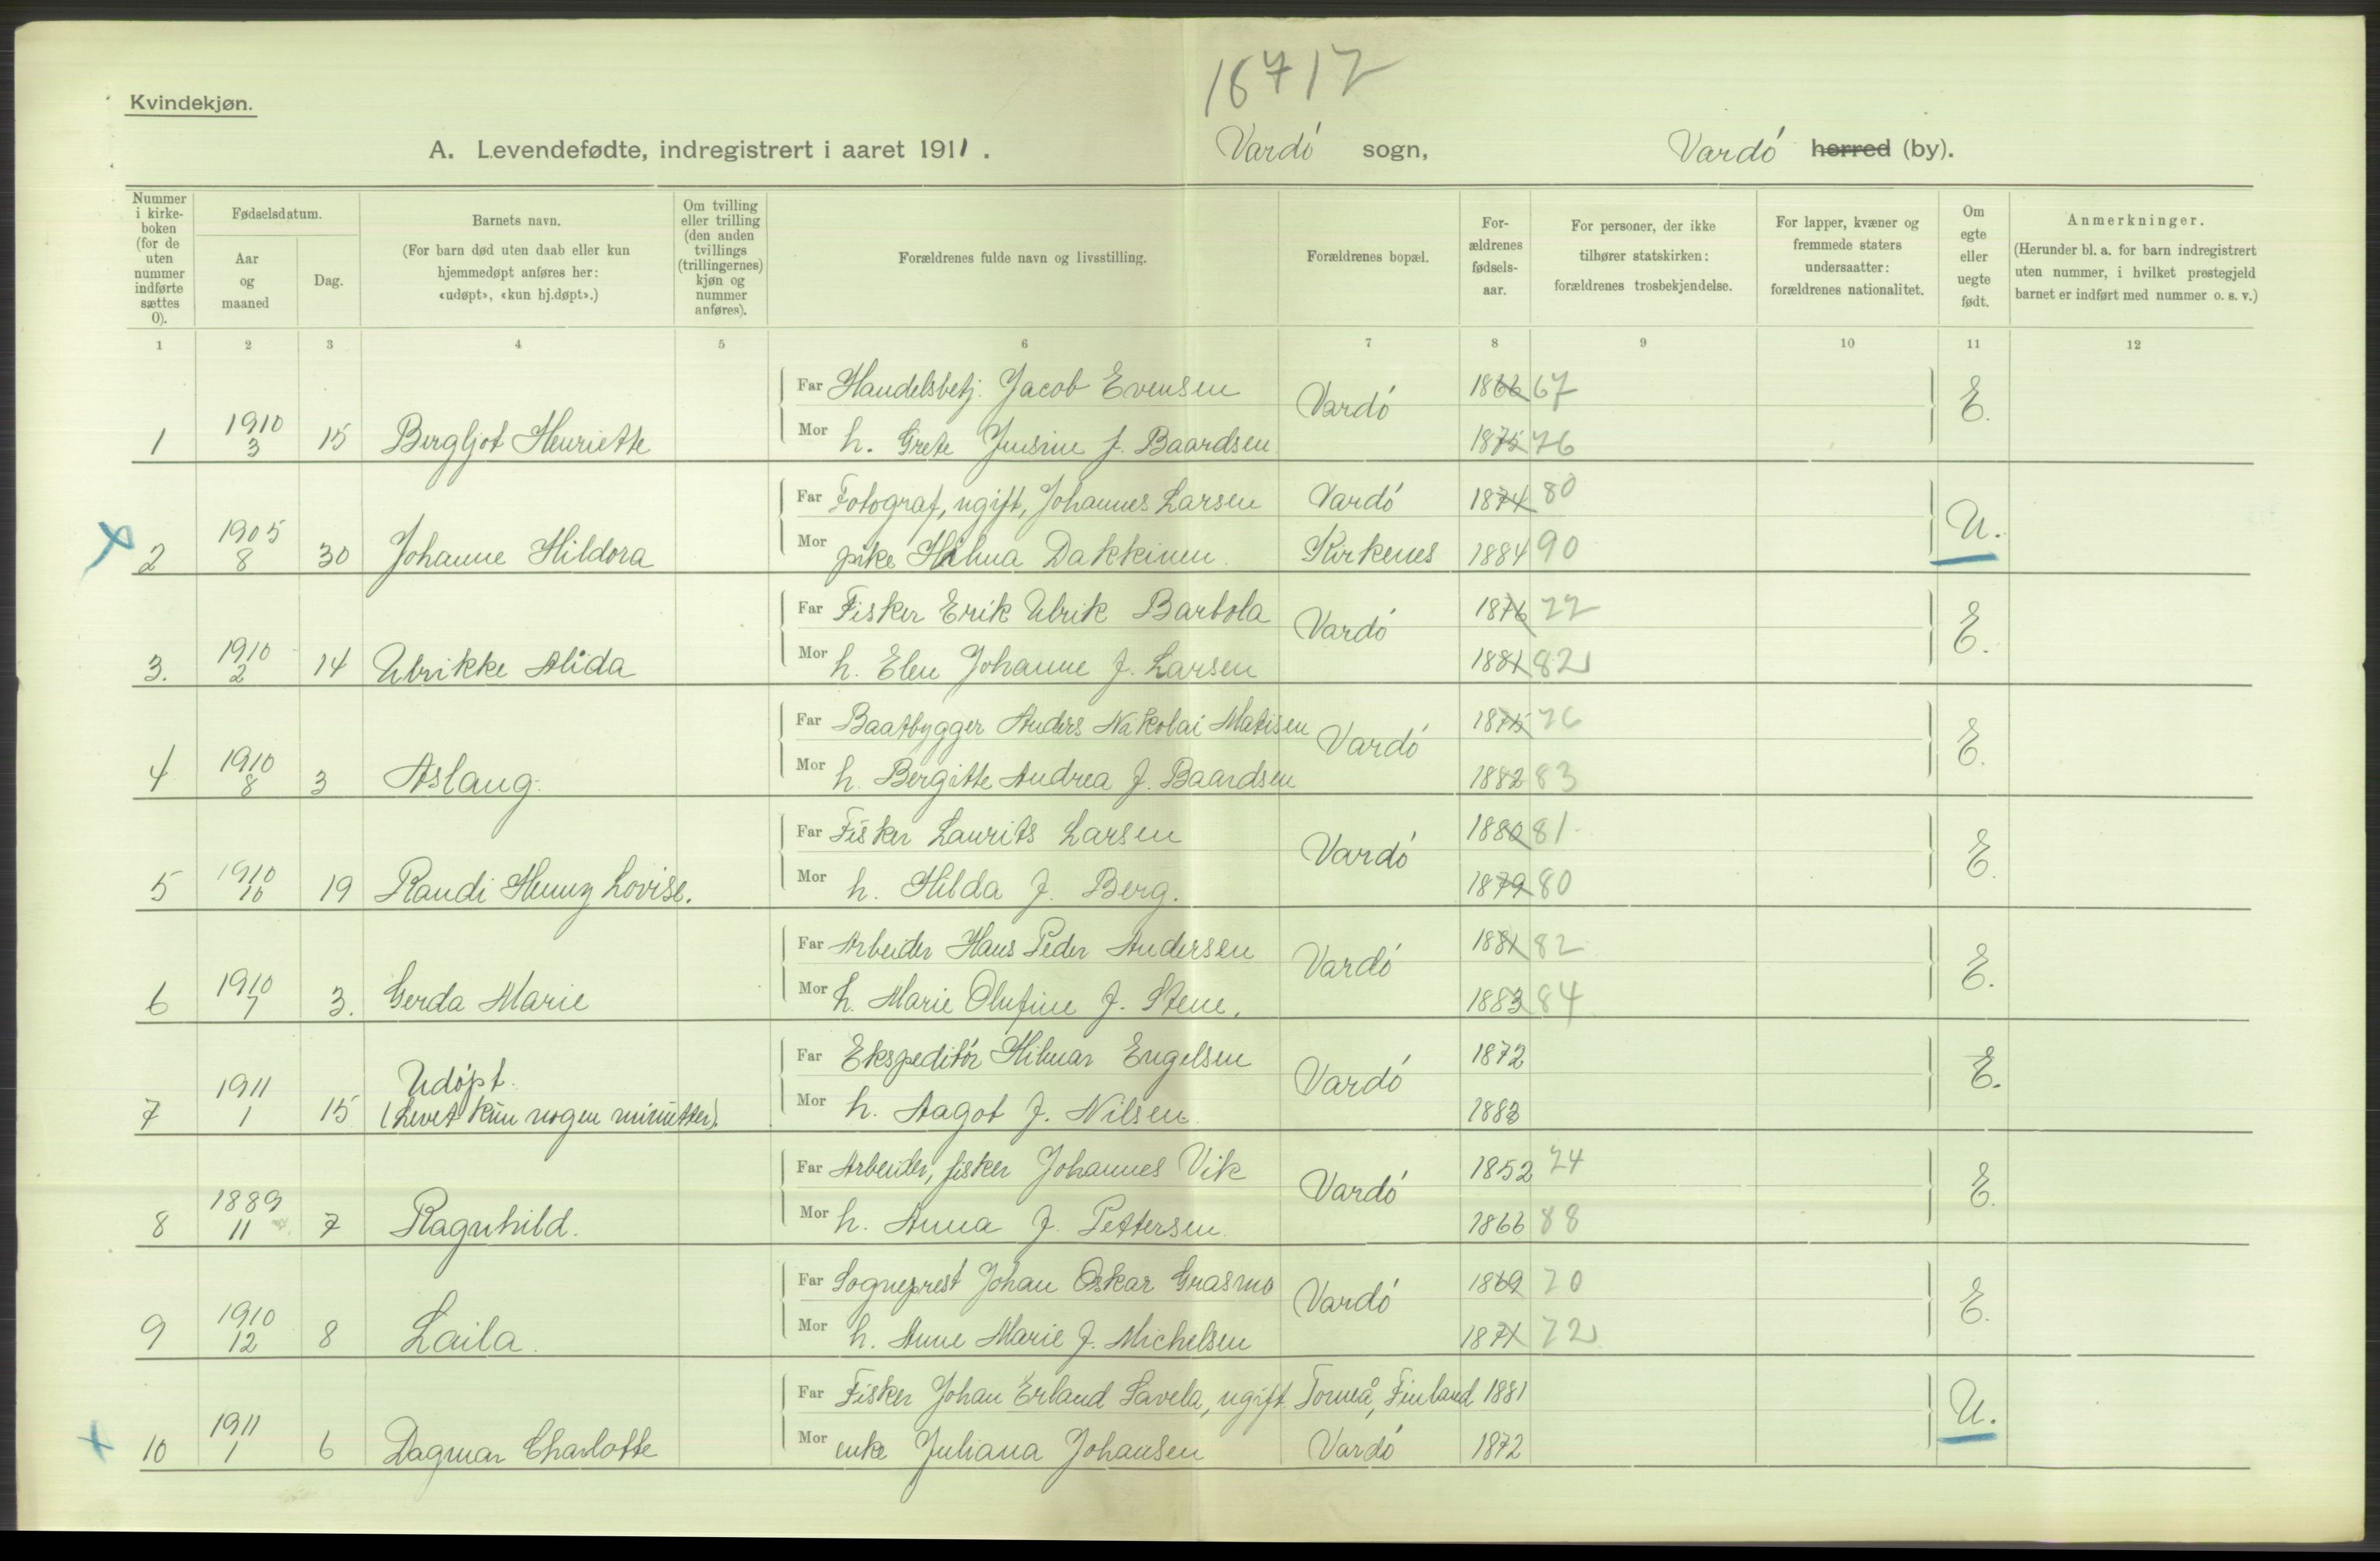 18712
Kvindekjøn.
A. Levendefødte, indregistrert i aaret 1911. Vardö sogn, Vardö herred (by).
Nummer i kirkeboken (for de uten nummer indførte sættes 0).
Fødselsdatum.
Aar og maaned
Dag.
Barnets navn.
(For barn død uten daab eller kun hjemmedøpt anføres her: «udøpt», «kun hj.døpt».)
Om tvilling eller trilling (den anden tvillings (trillingernes) kjøn og nummer anføres).
Forældrenes fulde navn og livsstilling.
Forældrenes bopæl.
Forældrenes fødselsaar.
For personer, der ikke tilhører statskirken: forældrenes trosbekjendelse.
For lapper, kvæner og fremmede staters undersaatter: forældrenes nationalitet.
Om egte eller uegte født.
Anmerkninger.
(Herunder bl. a. for barn indregistrert uten nummer, i hvilket prestegjeld barnet er indført med nummer o. s. v.)
1 2 3 4 5 6 7 8 9 10 11 12
Far Handelsbetj. Jacob Evensen Vardö 1866 67 E.
1 1910 3 15 Bergljot Henriette Mor h. Grete Jensine f. Baardsen 1875 76
Far Fotograf, ugift, Johannes Larsen Vardö 1874 80 U.
x 2 1905 8 30 Johanne Hildora Mor pike Hilma Dakkinen. Kirkenes 1884 90
Far Fisker Erik Ulrik Barbola Vardö 1876 77 E.
3. 1910 2 14 Ulrikke Alida Mor h. Elen Johanne f. Larsen 1881 82
Far Baatbygger Anders Nikolai Matisen Vardö 1875 76 E.
4 1910 8 3 Aslaug. Mor h. Bergitte Andrea f. Baardsen 1882 83
Far Fisker Laurits Larsen Vardö 1880 81 E.
5 1910 10 19 Randi Henny Lovise. Mor h. Hilda f. Berg. 1879 80
Far Arbeider Hans Peder Andersen Vardö 1881 82 E.
6 1910 7 3. Gerda Marie Mor h. Marie Olufine f. Stene. 1883 84
Far Ekspeditör Hilmar Engelsen Vardö 1872 E.
7 1911 1 15 Udöpt. (Levet kun nogen minutter). Mor h. Aagot f. Nilsen. 1883
Far Arbeider, fisker Johannes Vik Vardö 1852 74 E.
8 1889 11 7 Ragnhild. Mor h. Anna f. Pettersen. 1866 88
Far Sogneprest Johan Oskar Grasmo Vardö 1869 70 E.
9 1910 12 8 Laila. Mor h. Anne Marie f. Michelsen 1871 72
Far Fisker Johan Erland Savela, ugift. Torneå, Finland 1881 U.
x 10 1911 1 6 Dagmar Charlotte Mor enke Juliana Johansen Vardö 1872